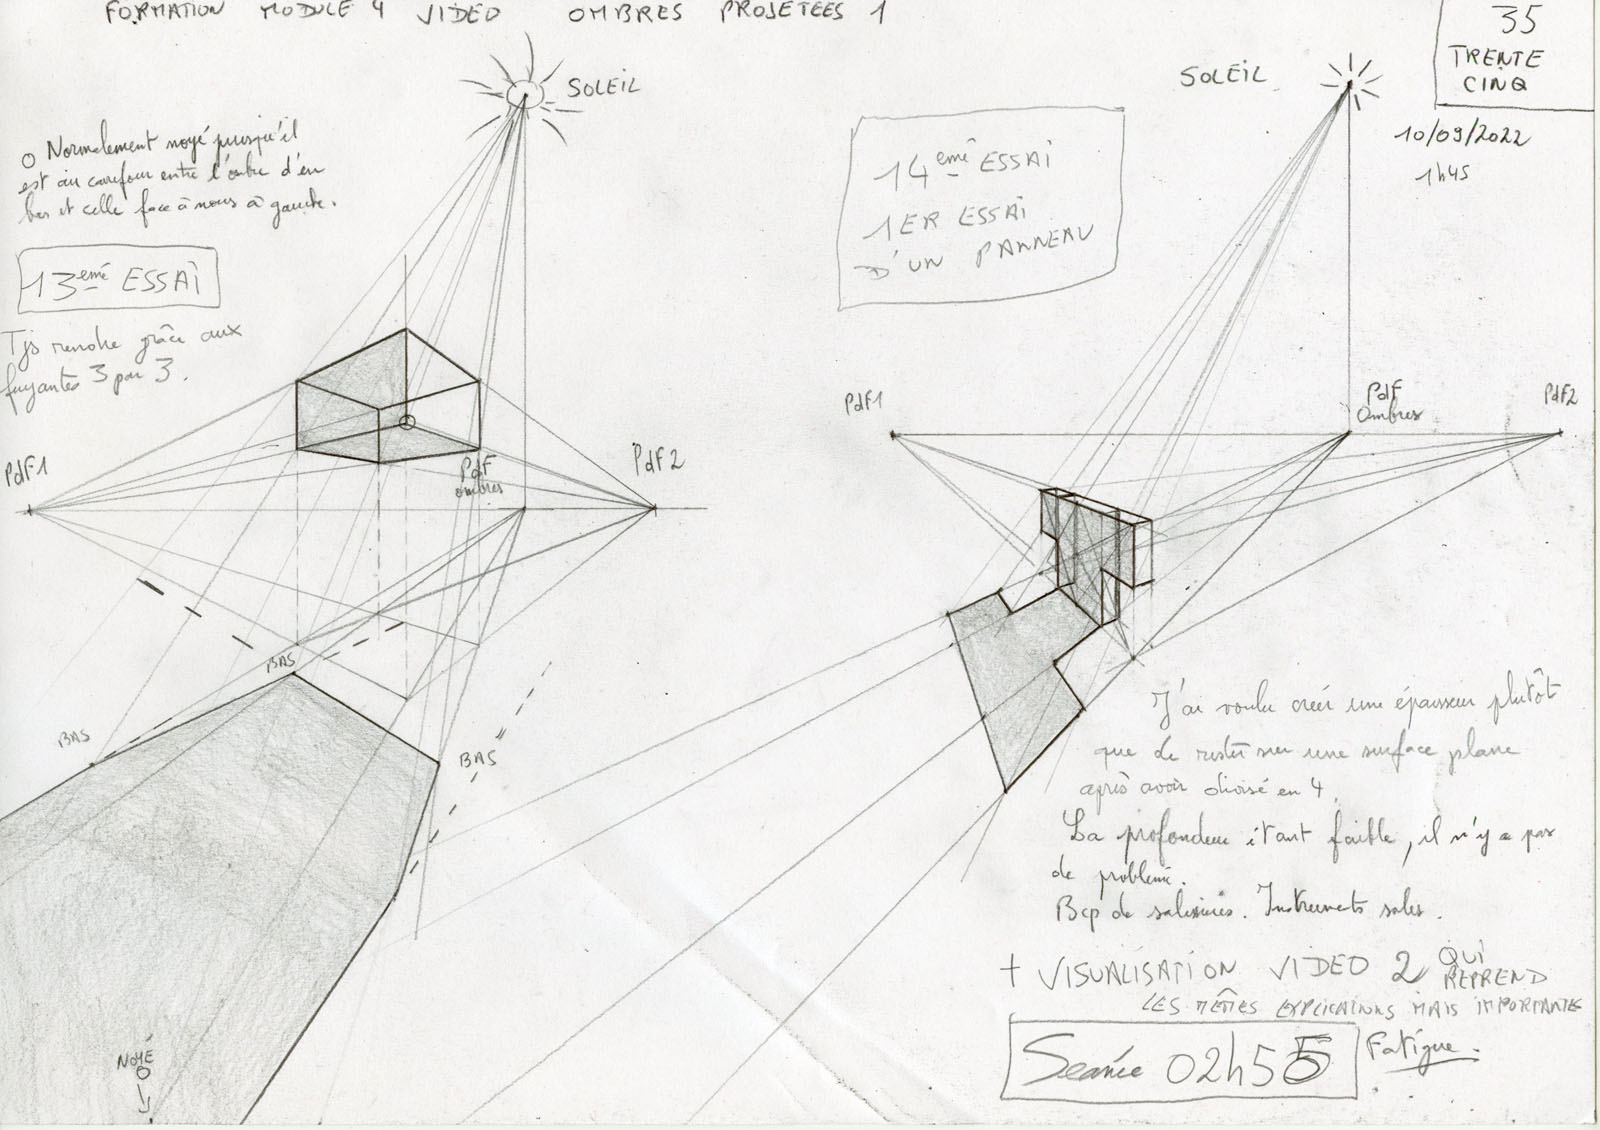 FORMATION MODULE 4 VIDEO OMBRES PROJETEES 1
35
TRENTE
CINQ
10/09/2022
1h45
SOLEIL
O Normalement noyé puisqu'il
est au carrefour entre l'ombre d'en
bas et celle face à nous à gauche.
13emé ESSAI
Tjs rendre grâce aux
fuyantes 3 par 3.
PdF1
PdF
ombres
PdF2
BAS
BAS
BAS
NOYÉ
O
SOLEIL
14emé ESSAI
1ER ESSAI
D'UN PANNEAU
PdF1
PdF
Ombres
PdF2
J'ai voulu créer une épaisseur plutôt
que de rester sur une surface plane
après avoir divisé en 4.
La profondeur étant faible, il n'y a pas
de problemé.
Bcp de salissures. Instruments sales.
+ VISUALISATION VIDEO 2 QUI
REPREND
LES MÊMES EXPLICATIONS MAIS IMPORTANTES
Seánce 02h55
Fatigue.